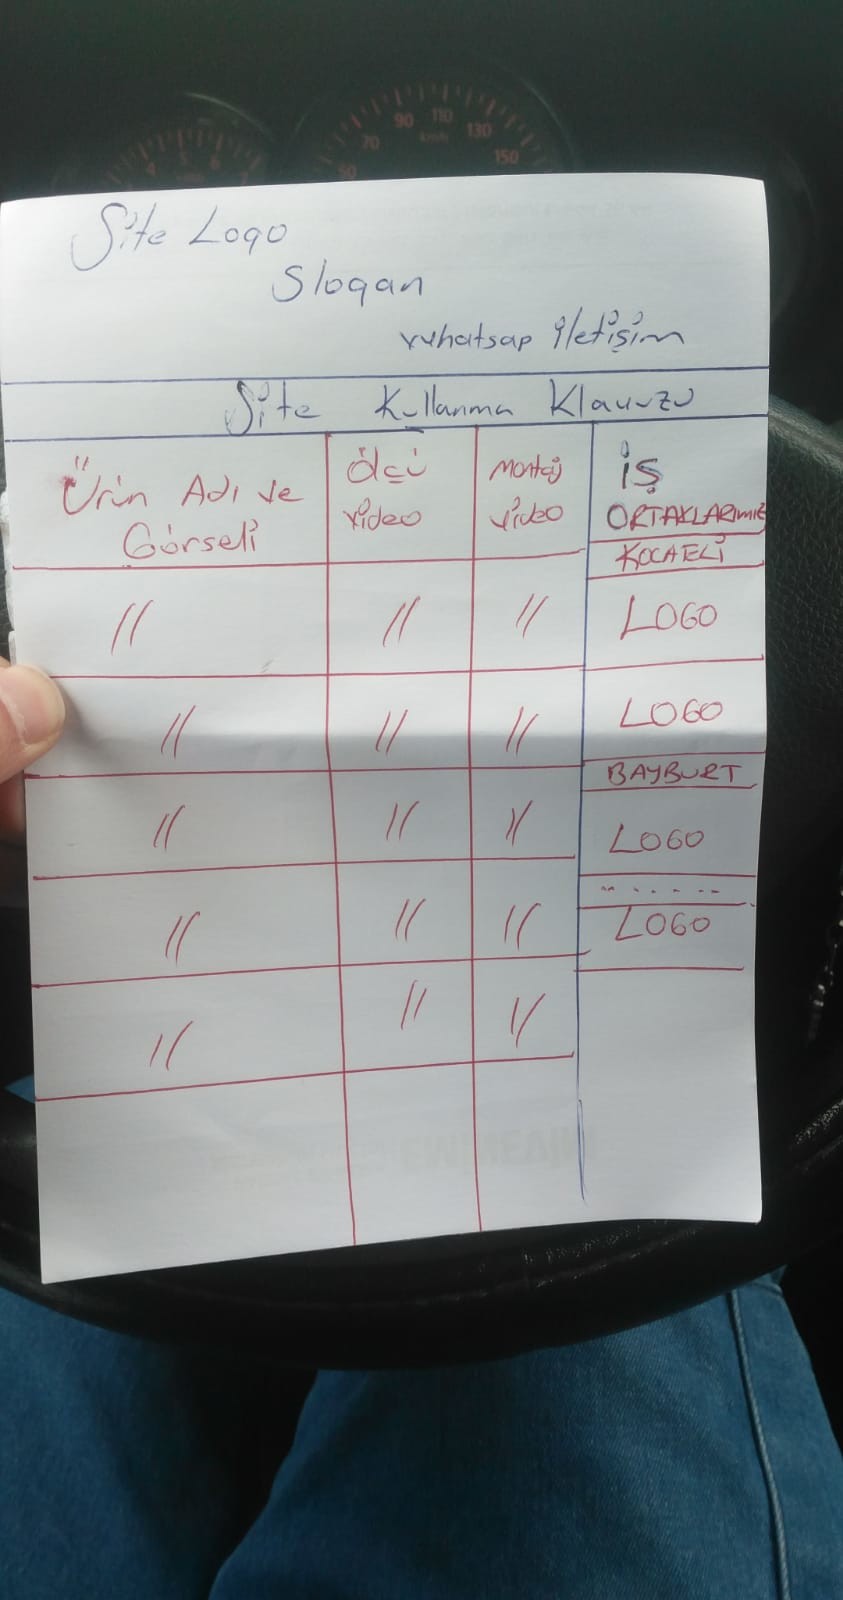 4 5 6
50 70 90 110 130 150
km/h
Site Logo
Slogan
whatsap iletişim
Site Kullanma Klavuzu
Ürün Adı ve
Görseli
Ölçü
video
montaj
video
İŞ
ORTAKLARIMIZ
KOCAELİ
// // // LOGO
// // // LOGO
BAYBURT
// // // LOGO
.......
// // // LOGO
// // //